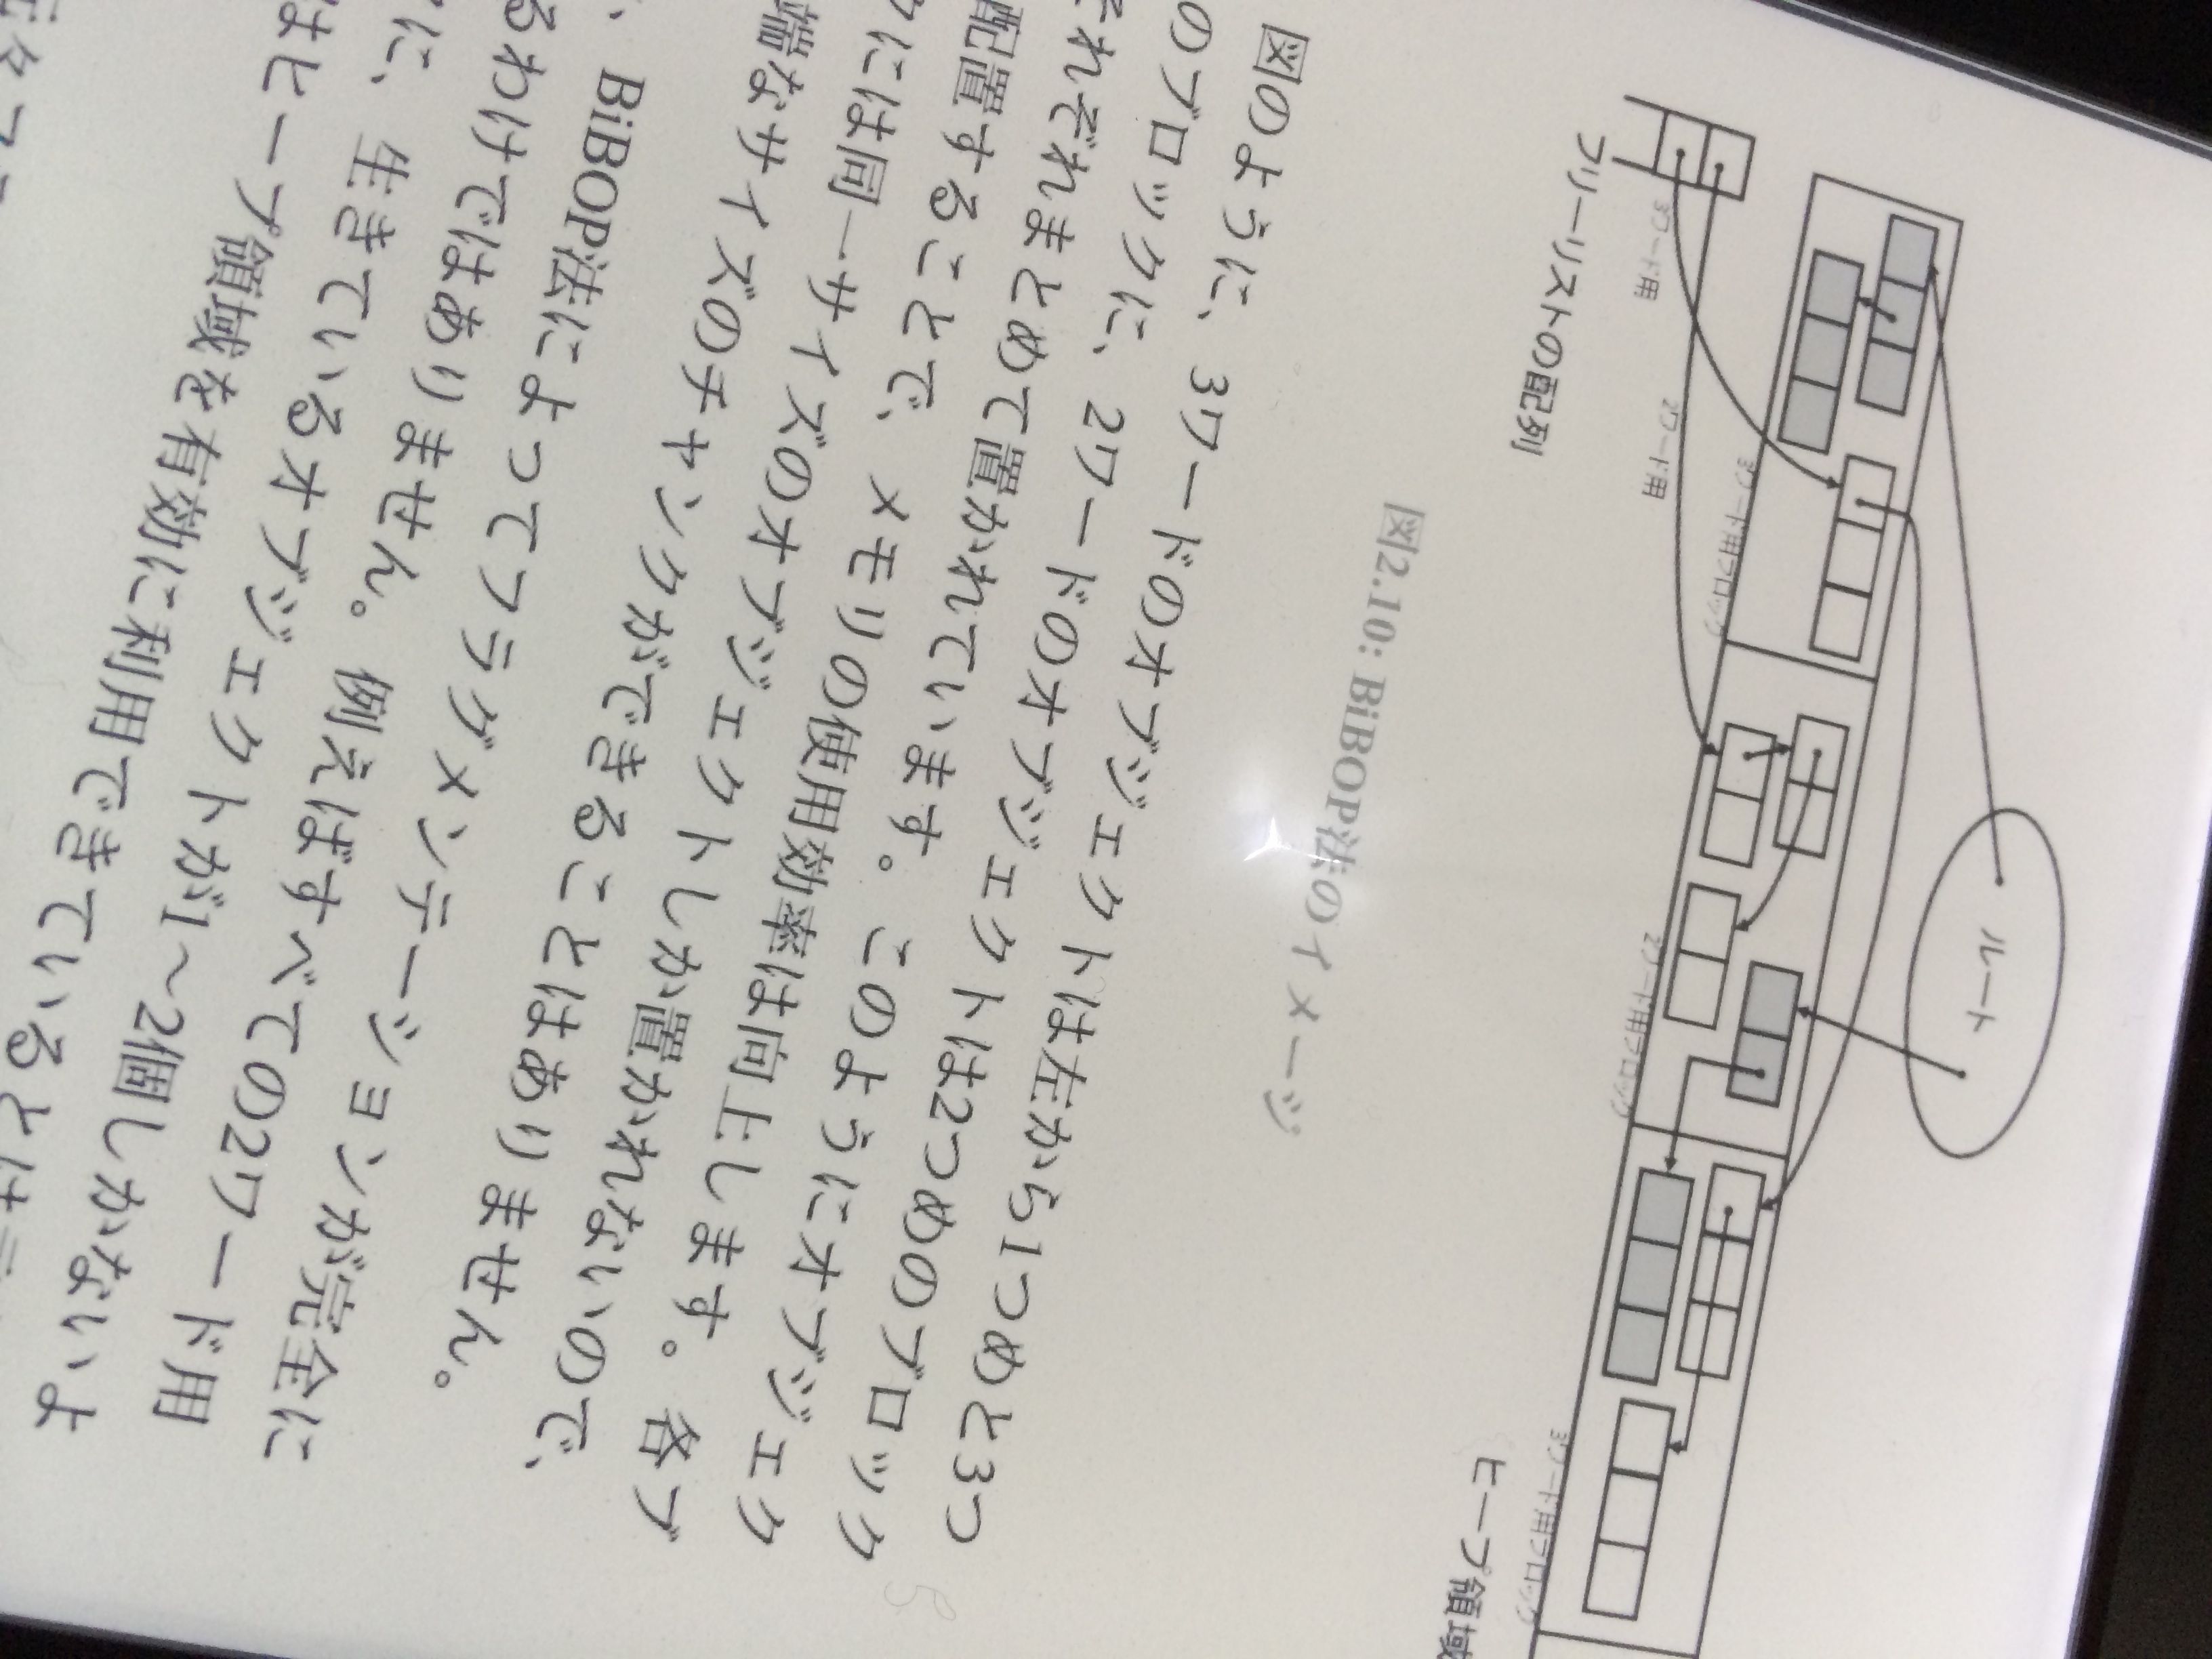 ルート
3ワード用
2ワード用
3ワード用ブロック
2ワード用ブロック
3ワード用ブロック
フリーリストの配列
ヒープ領域
図2.10: BiBOP法のイメージ
図のように、3ワードのオブジェクトは左から1つめと3つ
のブロックに、2ワードのオブジェクトは2つめのブロック
それぞれまとめて置かれています。このようにオブジェク
配置することで、メモリの使用効率は向上します。各ブ
クには同一サイズのオブジェクトしか置かれないので、
端なサイズのチャンクができることはありません。
、BiBOP法によってフラグメンテーションが完全に
るわけではありません。例えばすべての2ワード用
に、生きているオブジェクトが1〜2個しかないよ
はヒープ領域を有効に利用できているとは